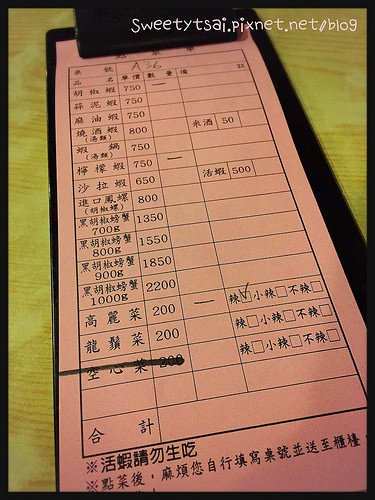 Sweetytsai.pixnet.net/blog
點菜單
桌號 A36
品名 單價 數量 備註
胡椒蝦 750
蒜泥蝦 750
麻油蝦 750
燒酒蝦 800 米酒 50
(湯類)
蝦鍋 750
(湯類)
檸檬蝦 750 一
沙拉蝦 650 活蝦 500
進口鳳螺 800
(胡椒螺)
黑胡椒螃蟹 1350
700g
黑胡椒螃蟹 1550
800g
黑胡椒螃蟹 1850
900g
黑胡椒螃蟹 2200
1000g
高麗菜 200 一 辣☑小辣□不辣□
龍鬚菜 200 辣□小辣□不辣□
空心菜 200 辣□小辣□不辣□
合計
※活蝦請勿生吃
※點菜後,麻煩您自行填寫桌號並送至櫃檯